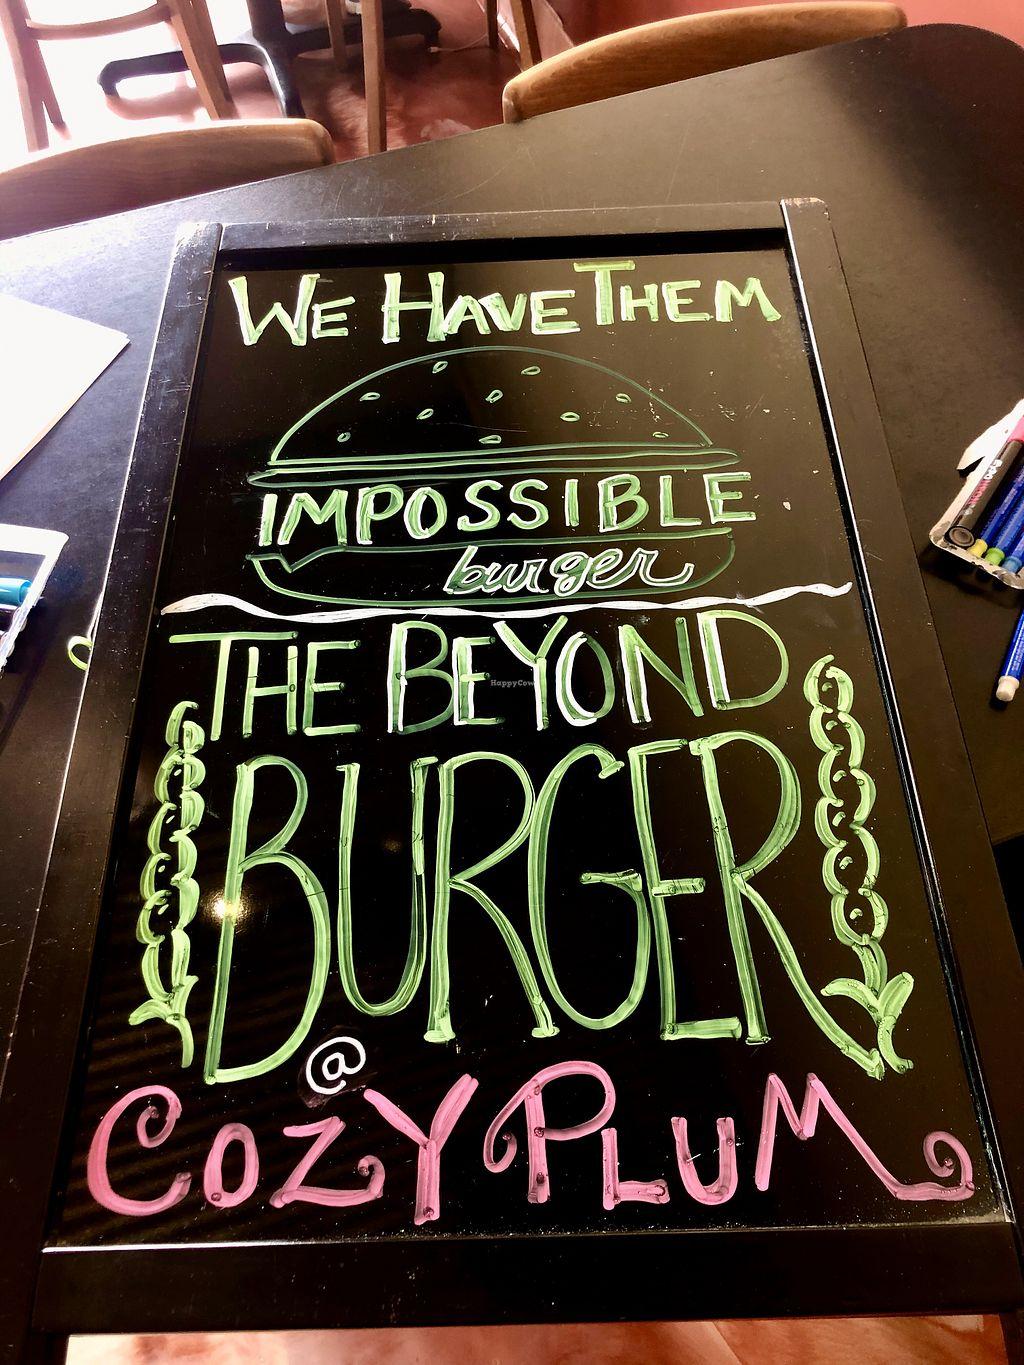 WE HAVE THEM
IMPOSSIBLE
burger
THE BEYOND
HappyCow
BURGER
@
COZY PLUM